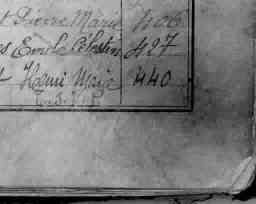 t Pierre Marie 406
s Emile Célestin 427
t Henri Marie 440